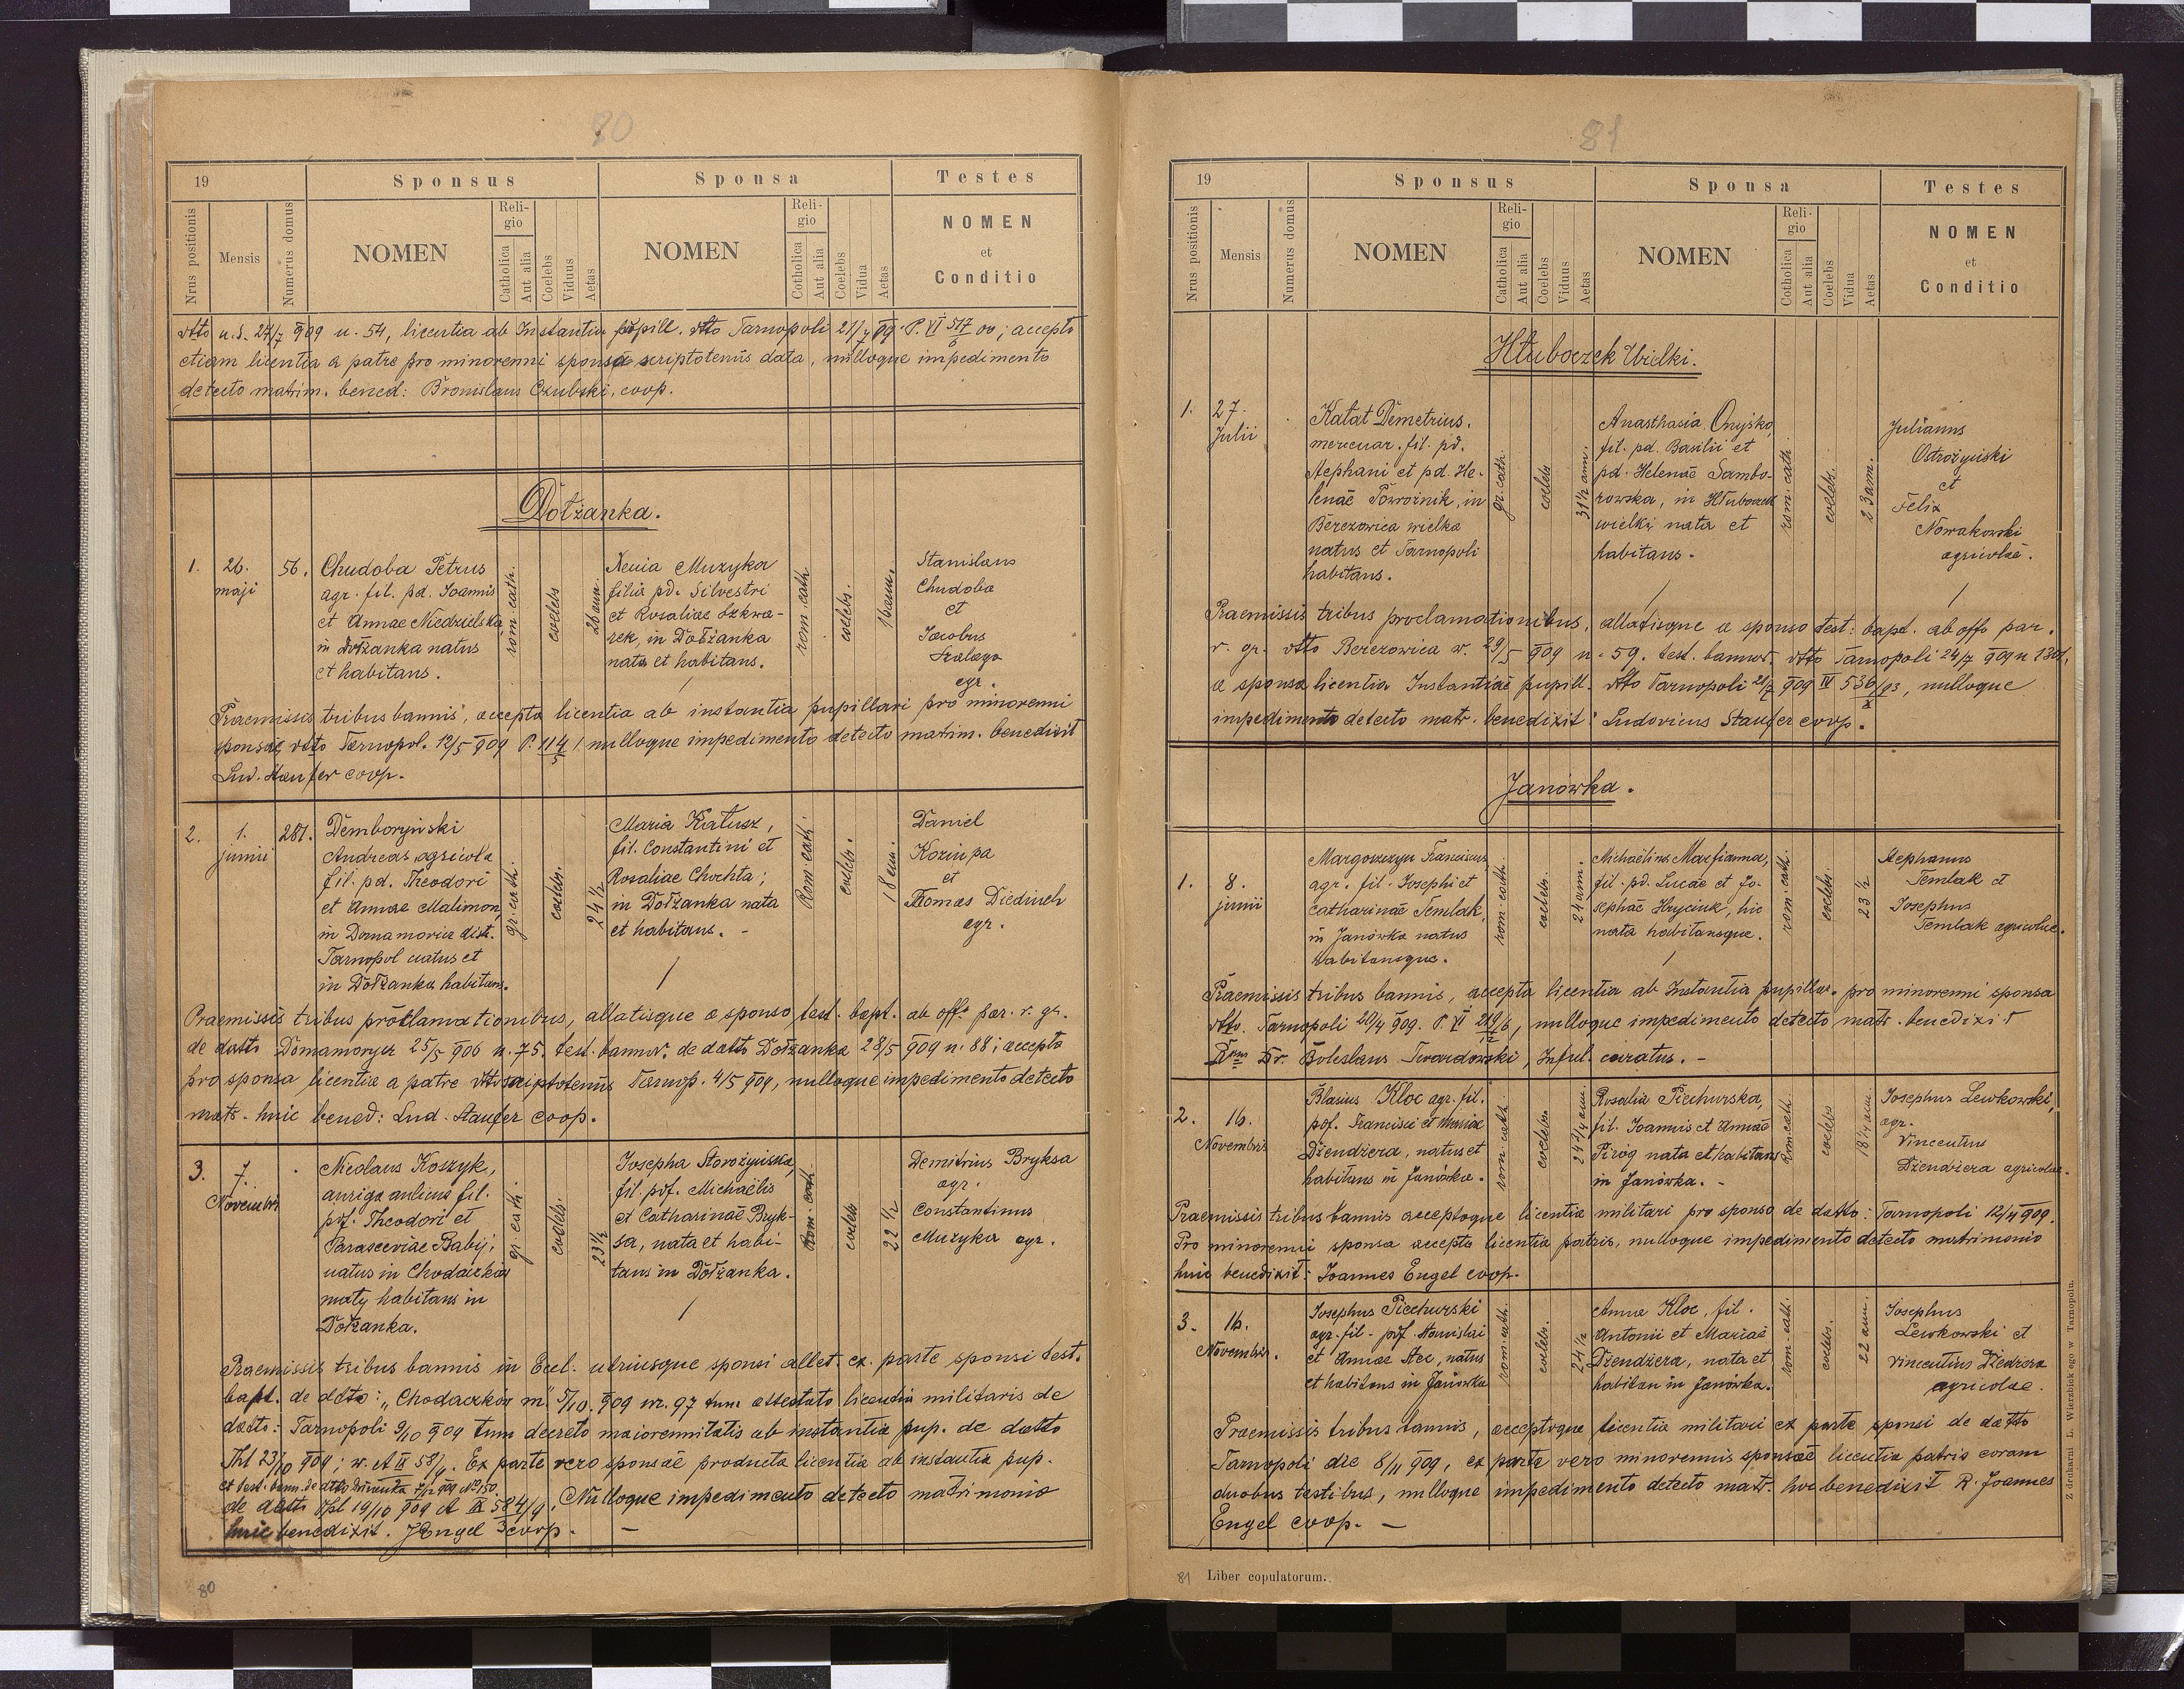 80
19
Sponsus
Sponsa
Testes
Nrus positionis
Mensis
Numerus domus
NOMEN
Religio
Catholica
Aut alia
Coelebs
Viduus
Aetas
NOMEN
Religio
Cotholica
Aut alia
Coelebs
Vidua
Aetas
NOMEN
et
Conditio
dtto u.s. 27/7 909 n. 54, licentia ab Instantia pupill. dtto Tarnopoli 21/7 909 P. VI 517/6 00; accepto
etiam licentia a patre pro minorenni sponsa scriptotenus data, nulloque impedimento
detecto matrim. bened: Bronislaus Czubski, coop.
Dołżanka.
1.
26.
maji
56.
Chudoba Petrus
agr. fil. pd. Joannis
et Annae Niedzielska,
in Dołżanka natus
et habitans.
rom. cath.
coelebs
26 ann.
Xenia Muzyka
filia pd. Silvestri
et Rosaliae Szkwa-
rek, in Dołżanka
nata et habitans.
rom. cath
coelebs.
16 ann.
Stanislaus
Chudoba
et
Jacobus
Szeloga
agr.
Praemissis tribus bannis, accepta licentia ab instantia pupillari pro minorenni
sponsae dtto Tarnopol. 12/5 909 P. 114/5 1 nulloque impedimento detecto matrim. benedixit
Lud. Staufer coop.
2.
1.
junii
281.
Demboryński
Andreas agricola
fil. pd. Theodori
et Annae Malimon,
in Domamoricz dist.
Tarnopol natus et
in Dołżanka habitans.
gr. cath.
coelebs.
24 1/2
Maria Kałusz,
fil. Constantini et
Rosaliae Chochta;
in Dołżanka nata
et habitans. -
Rom. cath.
coelebs.
18 ann.
Daniel
Korinpa
et
Thomas Diedinch
agr.
Praemissis tribus proclamationibus, allatisque a sponso test. bapt. ab offo par. r. gr.
de datto Domamorycz 25/5 906 n. 75. test. bannor. de datto Dołżanka 28/5 909 n. 88; accepta
pro sponsa licentia a patre dtto scriptotenus Tarnop. 4/5 909, nulloque impedimento detecto
matr. huic bened: Lud. Staufer coop.
3.
7.
Novembris
Nicolaus Koszyk,
auriga aulicus fil.
pdf. Theodori et
Parasceviae Babij,
natus in Chodaczków
mały habitans in
Dołżanka.
gr. cath.
coelebs.
23 1/2
Josepha Storożyńska,
fil. pdf. Michaëlis
et Catharinae Bryk-
sa, nata et habi-
tans in Dołżanka.
Rom. cath
coelebs
22 1/2
Demitrius Bryksa
agr.
Constantinus
Muzyka agr.
Praemissis tribus bannis in Eccl. utriusque sponsi allet. ex. parte sponsi test.
bapt. de dtto: "Chodaczków m." 5/10. 909 nr. 97 tum attestato licentia militaris de
datto: Tarnopoli 9/10 909 tum decreto maiorennitatis ab instantia pup. de datto
Tpl 23/10 909; n. A IX 58/9. Ex parte vero sponsae producta licentia ab instantia pup.
et test. bann. de dtto 7/11 909 No 150.
de datto Tpl 19/10 909 A IX 584/9. Nulloque impedimento detecto matrimonio
huic benedixit. J Engel coop. -
80
81
19
Sponsus
Sponsa
Testes
Nrus positionis
Mensis
Numerus domus
NOMEN
Religio
Catholica
Aut alia
Coelebs
Viduus
Aetas
NOMEN
Religio
Cotholica
Aut alia
Coelebs
Vidua
Aetas
NOMEN
et
Conditio
Hłuboczek Wielki.
1.
27.
Julii
Kałat Demetrius.
mercuar. fil. pd.
Stephani et pd. He-
lenae Powroźnik, in
Berezowica wielka
natus et Tarnopoli
habitans.
gr. cath.
coelebs
31 1/2 ann.
Anasthasia Onyśko,
fil. pd. Basilii et
pd. Helenae Sambo-
rowska, in Hłuboczek
wielki nata et
habitans.
rom. cath.
coelebs.
23 ann.
Julianus
Ostrożyński
et
Felix
Nowakowski
agricolae.
Praemissis tribus proclamationibus, allatisque a sponso test: bapt. ab offo par.
r. gr. dtto Berezowica w. 29/5 909 n. 59. test. bannor. dtto Tarnopoli 24/7 909 n 1301,
a sponsa licentia Instantiae pupill. dtto Tarnopoli 21/7 909 IV 536/X 93, nulloque
impedimento detecto matr. benedixit: Ludovicus Staufer coop.
Janówka.
1.
8.
junii
Margoszczyn Franciscus
agr. fil. Josephi et
catharinae Temlak,
in Janówka natus
habitansque.
rom. cath.
coelebs.
24 ann.
Michaelina Marjianna,
fil. pd. Lucae et Jo-
sephae Hryciuk, hic
nata habitansque.
rom. cath.
coelebs.
23 1/2
Stephanus
Temlak et
Josephus
Temlak agricolae.
Praemissis tribus bannis, accepta licentia ab Instantia pupillar. pro minorenni sponsa
dtto. Tarnopoli 20/4 909. P. VI 219/6, nulloque impedimento detecto matr. benedixit
Dr. Boleslaus Twardowski, Inful. curatus. -
2.
16.
Novembris
Blasius Kloc agr. fil.
pdf. Francisci et Mariae
Dżendżera, natus et
habitans in Janówka.
rom. cath.
coelebs.
24 3/4 ann.
Rosalia Piechurska,
fil. Joannis et Annae
Piróg nata et habitans
in Janówka. -
Rom. cath.
coelebs
18 1/4 ann.
Josephus Lewkowski,
agr.
Vincentius
Dżendżera agricolae.
Praemissis tribus bannis acceptoque licentia militari pro sponso de datto: Tarnopoli 12/11 909.
Pro minorenni sponsa accepta licentia patris, nulloque impedimento detecto matrimonio
huic benedixit: Joannes Engel coop.
3.
16.
Novembr.
Josephus Piechurski
agr. fil. pdf. Stanislai
et Annae Stec, natus
et habitans in Janówka
rom. cath.
coelebs.
24 1/2
Anna Kloc, fil.
Antonii et Mariae
Dżendżera, nata et
habitan in Janówka.
rom. cath.
coelebs.
22 ann.
Josephus
Lewkowski et
Vincentius Dżedżera
agricolae.
Praemissis tribus bannis, acceptoque licentia militari ex parte sponsi de datto
Tarnopoli die 8/11 909, ex parte vero minorennis sponsae licentia patris coram
duobus testibus, nulloque impedimento detecto matr. hoc benedixit R. Joannes
Engel coop. -
81 Liber copulatorum.
Z drukarni L. Wierzbickiego w Tarnopolu.